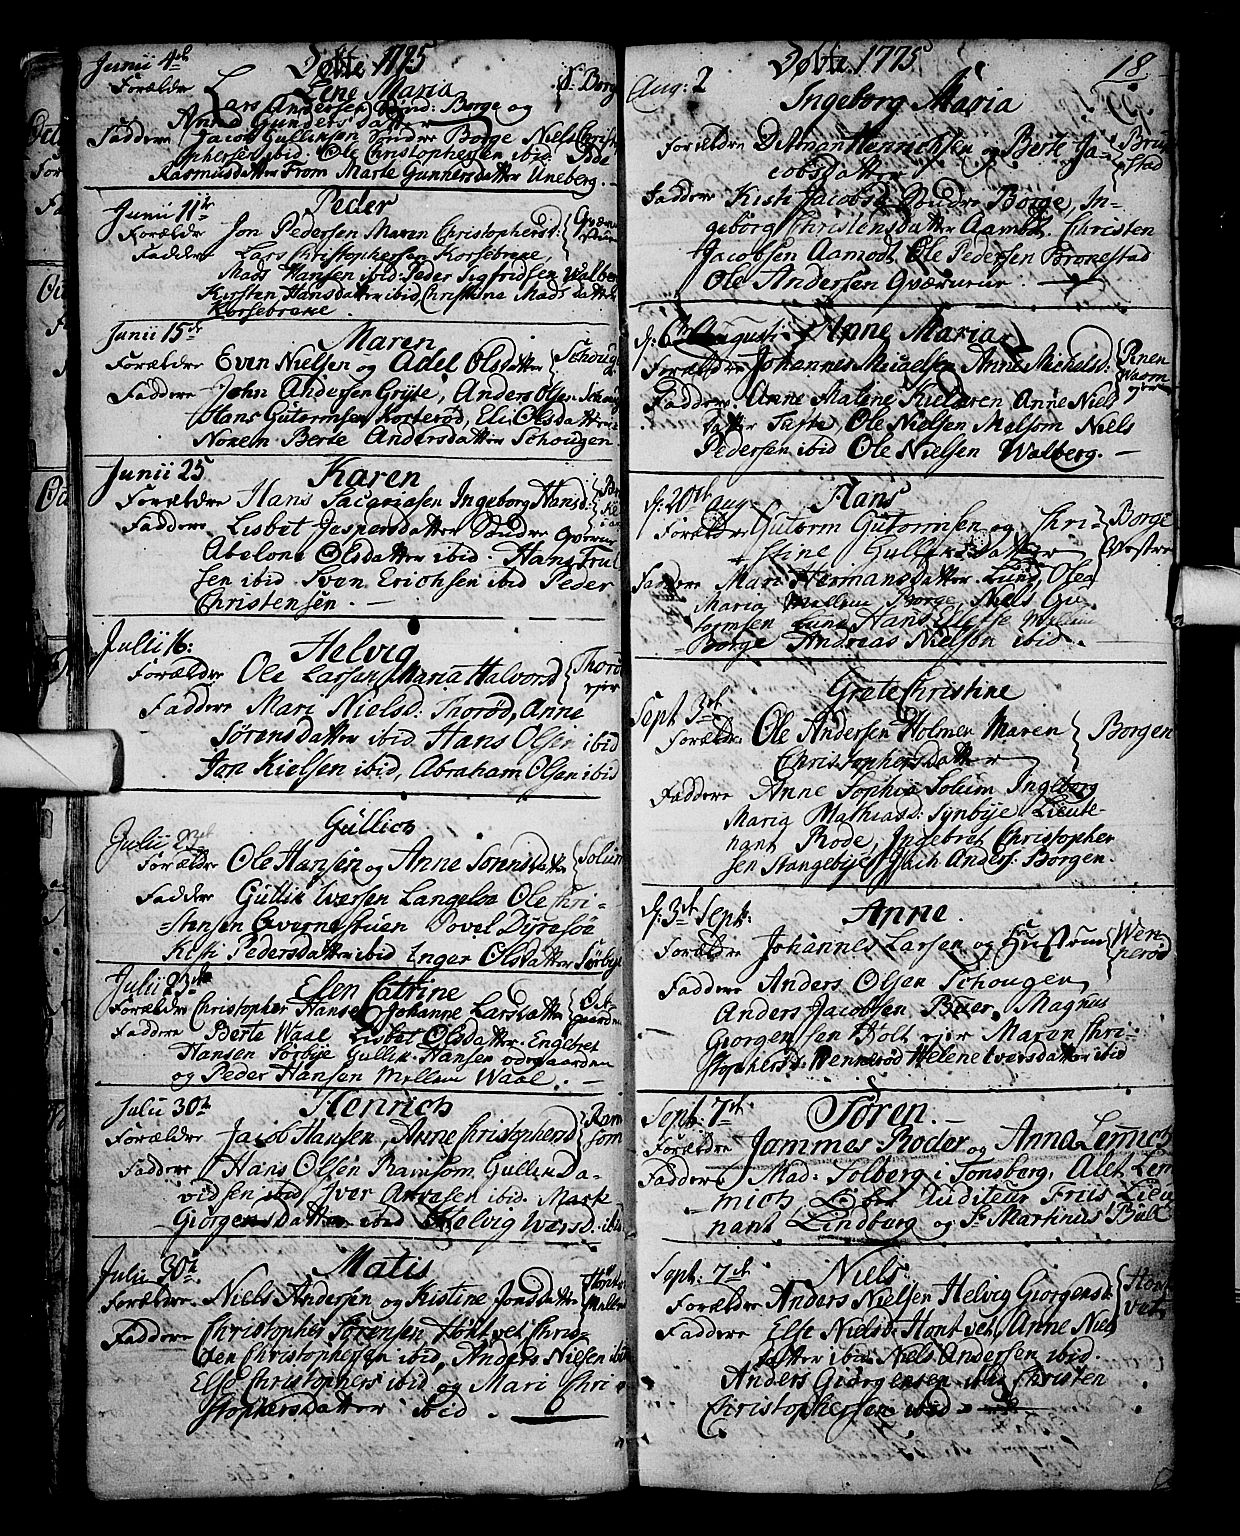 Døbte 1775
Junii 4de Lene Maria
Forældre Lars Andersen Sønd: Borge og
Anne Gundersdatter
Faddere Jacob Gullichsen Søndre Borge Niels Christ-
ophersen ibid. Ole Christophersen ibid.
Rasmusdatter From Marte Gunnersdatter Uneberg.
Junii 11te Peder
Forældre Jon Pedersen Maren Christophersd:
Faddere Lars Christophersen Korsebreke,
Mads Hansen ibid: Peder Sigfridsen Walberg
Kirsten Hansdatter ibid Christine Mads datter
Korsebreke.
Junii 15de Maren
Forældre Even Nielsen og Adel Olsdatter Schougen
Faddere John Andersen Gryte, Anders Olsen Schoug
Hans Gutormsen Korterød, Eli Olsdatter
Noxem Berte Andersdatter Schougen
Junii 25 Karen
Forældre Hans Sacariasen Ingeborg Hansd:
Faddere Lisbet Jespersdatter Søndre Qverne
Abelone Olsdatter ibid. Hans Trul
sen ibid. Sven Erichsen ibid Peder
Christensen.
Julii 16: Helvig
Forældre Ole Larsen Maria Halvord Thorød
ejer
Faddere Mari Nielsd: Thorød, Anne
Sørensdatter ibid Hans Olsen ibid
Jon Kielsen ibid, Abraham Olsen ibid
Gullich
Julii
Forældre Ole Hansen og Anne Tønnisdatter Solum
Faddere Gullik Iversen Langeloe Ole Chri-
stensen Qvernestuen Povel Dyresø
Kisti Pedersdatter ibid Inger Olsdatter Sørbye
Julii 23de Elen Catrine
Forældre Christopher Hansen Johanne Larsdatter Ode-
gaarden
Faddere Berte Waal Lisbet Olsdatter. Engebret
Hansen Sørbye Gullik Hansen odegaarden
og Peder Hansen Mellem Waal.
Julii 30te Henrich
Forældre Jacob Hansen, Anne Christophersd Ram
som
Faddere Hans Olsen Ramsom Gullik Da-
vidsen ibid Iver Anvesen ibid. Marte
Giørgensdatter ibid Helvig Iversd. ibid
Julii 30te Matis
Forældre. Niels Andersen og Kistine Jonsdatter
Faddere Christopher Sørensen, Hont vet, Chris-
ten Christophersen ibid, Anders Nielsen ibid
Else Christophers ibid og Mari Chri
stophersdatter ibid.
Døbte 1775 18
Aug: 2 Ingeborg Maria
Forældre Ditman Henrichsen og Berte Ja- Bru
stad
cobsdatter
Faddere Kisti Jacobsd Søndre Borge, In-
geborg Christensdatter Aamot. Christen
Jacobsen Aamodt Ole Pedersen Brokestad
Ole Andersen Qværnruer.
Augusti: Anne Maria
Forældre Johannes Michelsen Anne Michelsd:
Faddere Anne Malene Kieldren Anne Niels
datter Tafte Ole Nielsen Melsom Niels
Pedersen ibid Ole Nielsen Walberg.
d: 20th aug Hans
Forældre Gutorm Gutormsen og Chri- Borge
stine Gullersdatter Westre
Faddere Mari Hermansdatter. Lund, Olea
Maria Mellem Borge, Niels Gu-
tormsen Hans
Borge Andreas Nielsen ibid.
Grete Christine
Sept 3de
Forældre Ole Andersen Holmer Maren Borgen
Christophersdatter
Faddere Anne Sophia Solum Ingeborg
Maria Mathiasd: Synbye Lieute-
nant Rode, Ingebret Christopher
sen Stangebye Anders: Borgen.
d: 3de Sept: Anne.
Forældre Johannes Larsen og Hustrue Wen-
nerød
Faddere Anders Olsen Schougen
Anders Jacobsen Beier, Magnus
Giorgensen Holt ejer Maren Chri-
stophersd: Wennerød Helene Iversdatter ibid
Sept: 7de Søren.
Forældre Jammes Roder og Anna Lemmich
Faddere Mad: Solberg i Tonsberg, Alet Lem
mich Auditeur Friis Lieu
nant Lindburg og Sr Martinus
Sept: 7de Niels.
Forældre Anders Nielsen Helvig Giorgensd: Hont
vet
Faddere Else Nielsd: Hont vet, Anne Niels
datter ibid Niels Andersen ibid.
Anders Giorgensen ibid Christen
Christophersen ibid